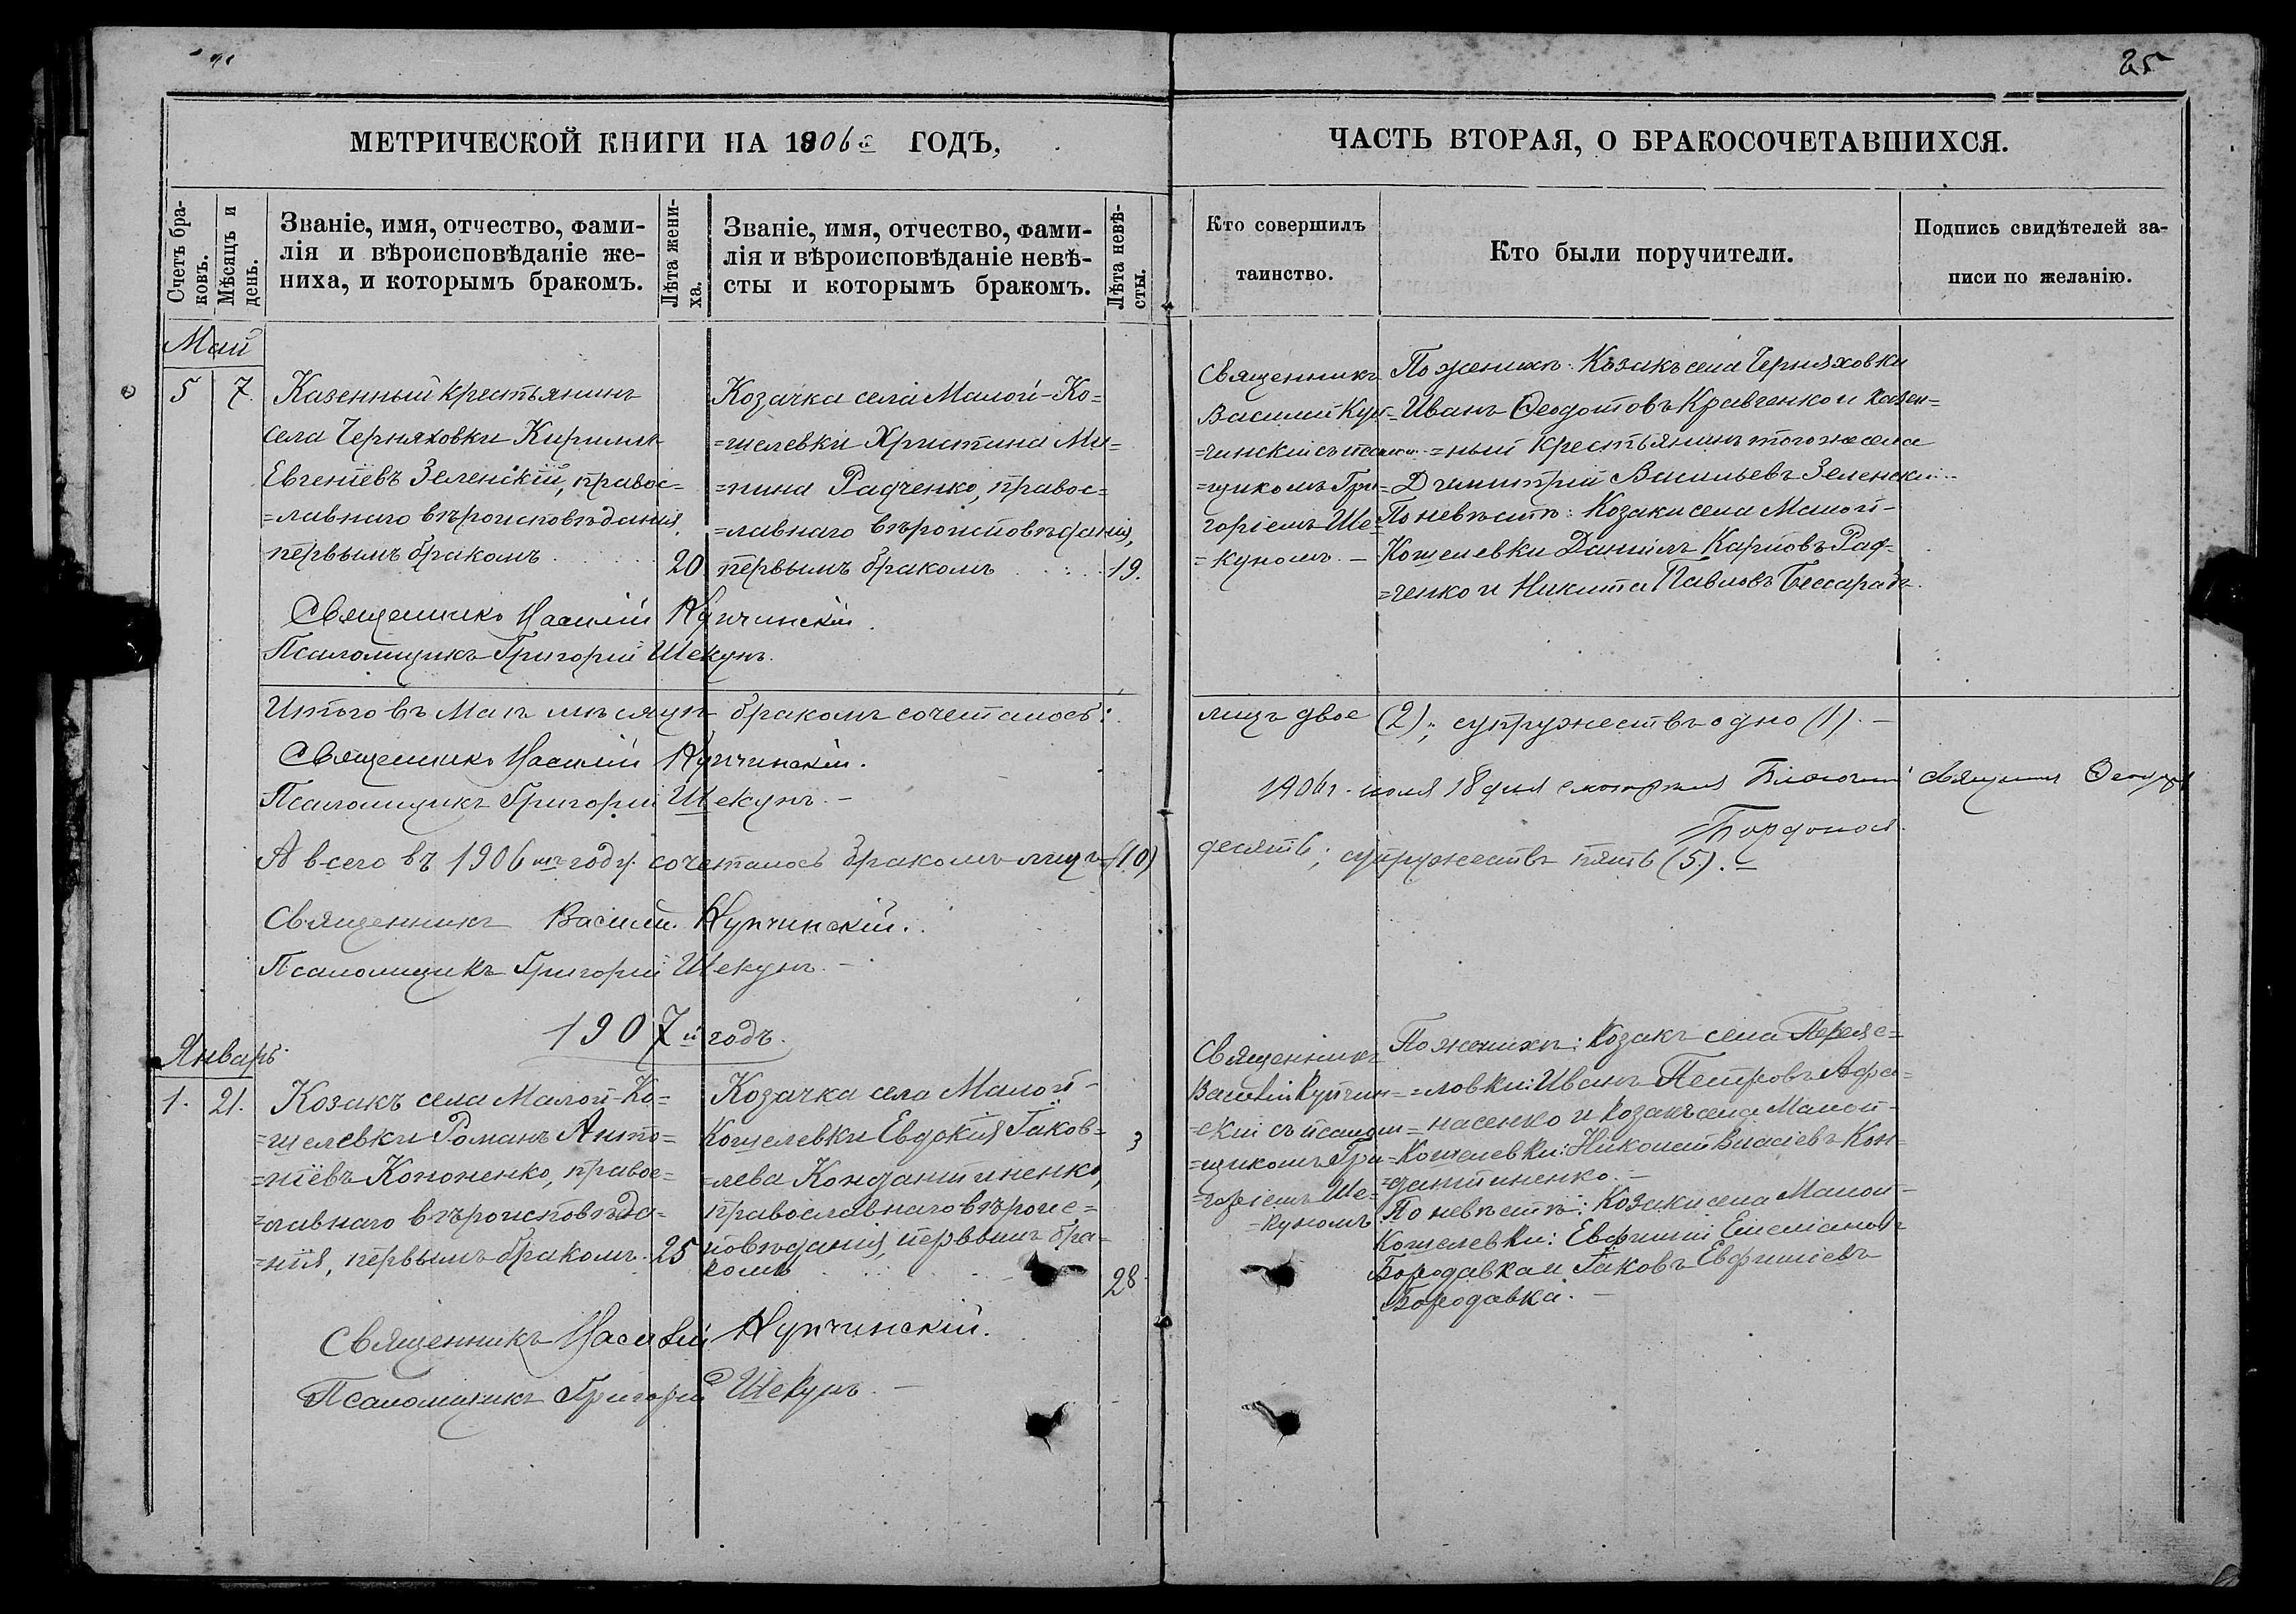 25
МЕТРИЧЕСКОЙ КНИГИ НА 1906й ГОДЪ,
ЧАСТЬ ВТОРАЯ, О БРАКОСОЧЕТАВШИХСЯ.
Счетъ бра-
ковъ.
Мѣсяцъ и
день.
Званіе, имя, отчество, фами-
лія и вѣроисповѣданіе же-
ниха, и которымъ бракомъ.
Лѣта жени-
ха.
Званіе, имя, отчество, фами-
лія и вѣроисповѣданіе невѣ-
сты и которымъ бракомъ.
Лѣта невѣ-
сты.
Кто совершилъ
таинство.
Кто были поручители.
Подпись свидѣтелей за-
писи по желанію.
Май
5 7.
Казенный крестьянинъ
села Черняховки Кириллъ
Евгеніевъ Зеленскій, правос=
=лавнаго вѣроисповѣданія,
первымъ бракомъ
20
Козачка села Малой-Ко=
=шелевки Христина Ми=
=нина Радченко, правос=
=лавнаго вѣроисповѣданія,
первымъ бракомъ
19.
Священникъ
Василій Куп=
=чинскій съ псалом=
=щикомъ Гри=
горіемъ Ше=
=куномъ. –
По женихѣ: Козакъ села Черняховки
Иванъ Ѳеодотовъ Кравченко и казен=
=ный крестьянинъ того же села
Димитрій Васильевъ Зеленскій.
По невѣстѣ: Козаки села Малой-
Кошелевки Даніилъ Карповъ Рад=
=ченко и Никита Павловъ Бессарабъ.
Священникъ Василій Купчинскій.
Псаломщикъ Григорій Шекунъ.
Итого въ Маѣ мѣсяцѣ бракомъ сочеталось: лицъ двое (2); супружествъ одно (1). –
Священникъ Василій Купчинскій.
Псаломщикъ Григорій Шекунъ. –
1906 г. іюля 18 дня смотрѣлъ Благочинный священникъ
А всего въ 1906мъ году сочеталось бракомъ лицъ (10) десять; супружествъ пять (5). –
Священникъ Василій Купчинскій.
Псаломщикъ Григорій Шекунъ. –
1907й годъ.
Январь.
1. 21.
Козакъ села Малой-Ко=
=шелевки Романъ Анто=
=ніевъ Кононенко, правос=
=лавнаго вѣроисповѣда=
=нія, первымъ бракомъ.
25
Козачка села Малой-
Кошелевки Евдокія Іаков=
=лева Кондантиненко,
православнаго вѣроис=
повѣданія, первымъ бра=
комъ
3
28.
Священникъ
Василій Купчин=
=скій съ псалом=
=щикомъ Гри=
=горіемъ Ше=
=куномъ
По женихѣ: Козакъ села Перея=
=ловки: Иванъ Петровъ Афа=
=насенко и козакъ села Малой-
Кошелевки: Николай Власіевъ Кон=
=дантиненко. –
По невѣстѣ: Козаки села Малой-
Кошелевки: Евфимій Емеліановъ
Бородавка и Іаковъ Евфиміевъ
Бородавка. –
Священникъ Василій Купчинскій.
Псаломщикъ Григорій Шекунъ. –